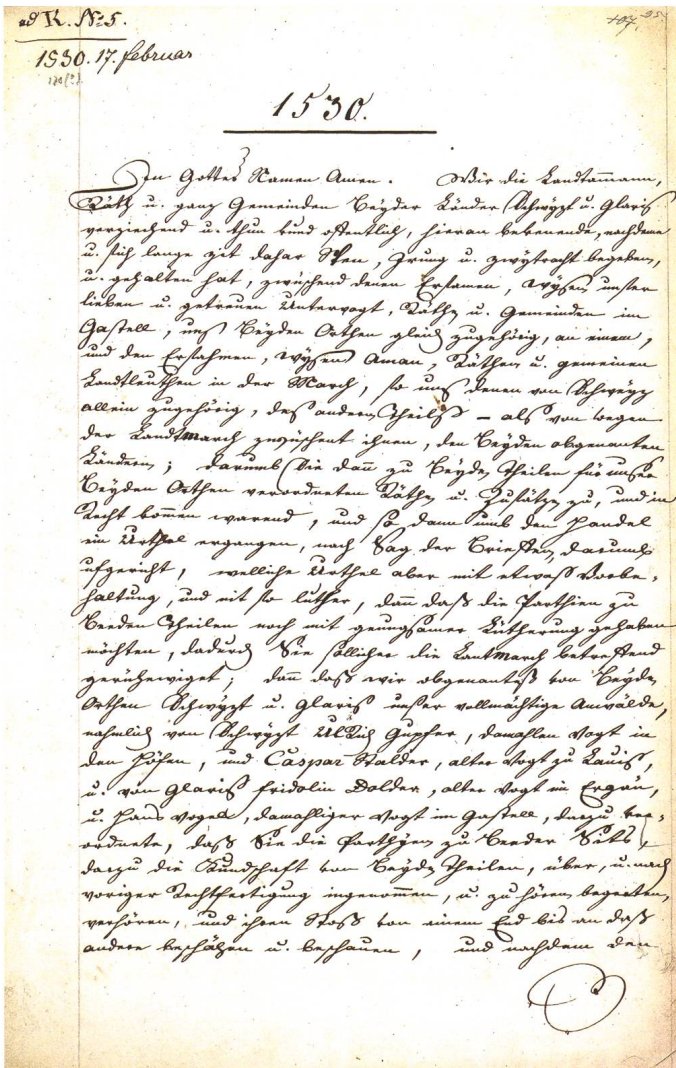 ad K. Nº 5.
1530. 17. februar
1530.
In Gottes Namen Amen. Wir die Landtammann,
Räth u. ganz Gemeinden Beyder Länder Schwÿz u. Glaris
verjechend u. thun kund offentlich, hieran bekenende, nachdeme
u. sich lange zit dahar Spen, Irung u. zwytracht begeben,
u. gehalten hat, zwüschend denen Ersamen, wysen unser
lieben u. getreuen Untervogt, Räthe u. Gemeinden im
Gastell, uns Beyden Orthen gleich zugehörig, an einem,
und den Ersahmen, wysen Aman, Räthen u. gemeinen
Landtleuthen in der March, so uns denen von Schweyz
allein zugehörig, des andern Theils – als von wegen
der Landtmarch zwüschent ihnen, den Beyden obgenanten
Länderen; darumb Sie dan zu Beyden Theilen für unser
Beyden Orthen verordneten Räthe u. Zusätze zu, und in
Recht kommen warend, und so dann umb den Handel
ein Urthel ergangen, nach Sag der Brieffen, darumb
ufgericht, welliche Urthel aber mit etwas Vorbe-
haltung, und nit so luther, dann daß die Parthien zu
Beeden Theilen noch mit genugsamer Lütherung gehaben
möchten, dadurch Sie söllicher die Lantmarch betreffend
gerüheniget; dann daß wir obgenante von Beyden
Orthen Schwÿz u. Glaris unser vollmächtige Anwälde,
nahmlich von Schwÿz Ulrich Gupfer, damahlen Vogt in
den Höfen, und Caspar Stalder, alter Vogt zu Lauis,
u. von Glaris Fridolin Dolder, alter Vogt im Ergäu,
u. Hans Vogel, damahliger Vogt im Gastell, darzu ver-
ordnete, daß Sie die Parthyen zu Beeder Sits,
darzu die Kundschaft von Beyden Theilen, über, u. nach
voriger Rechtfertigung ingenommen, u. zu hören begerten,
verhören, und ihren Stoß von einem End bis an daß
andere beschähen u. beschauen, und nachdem den